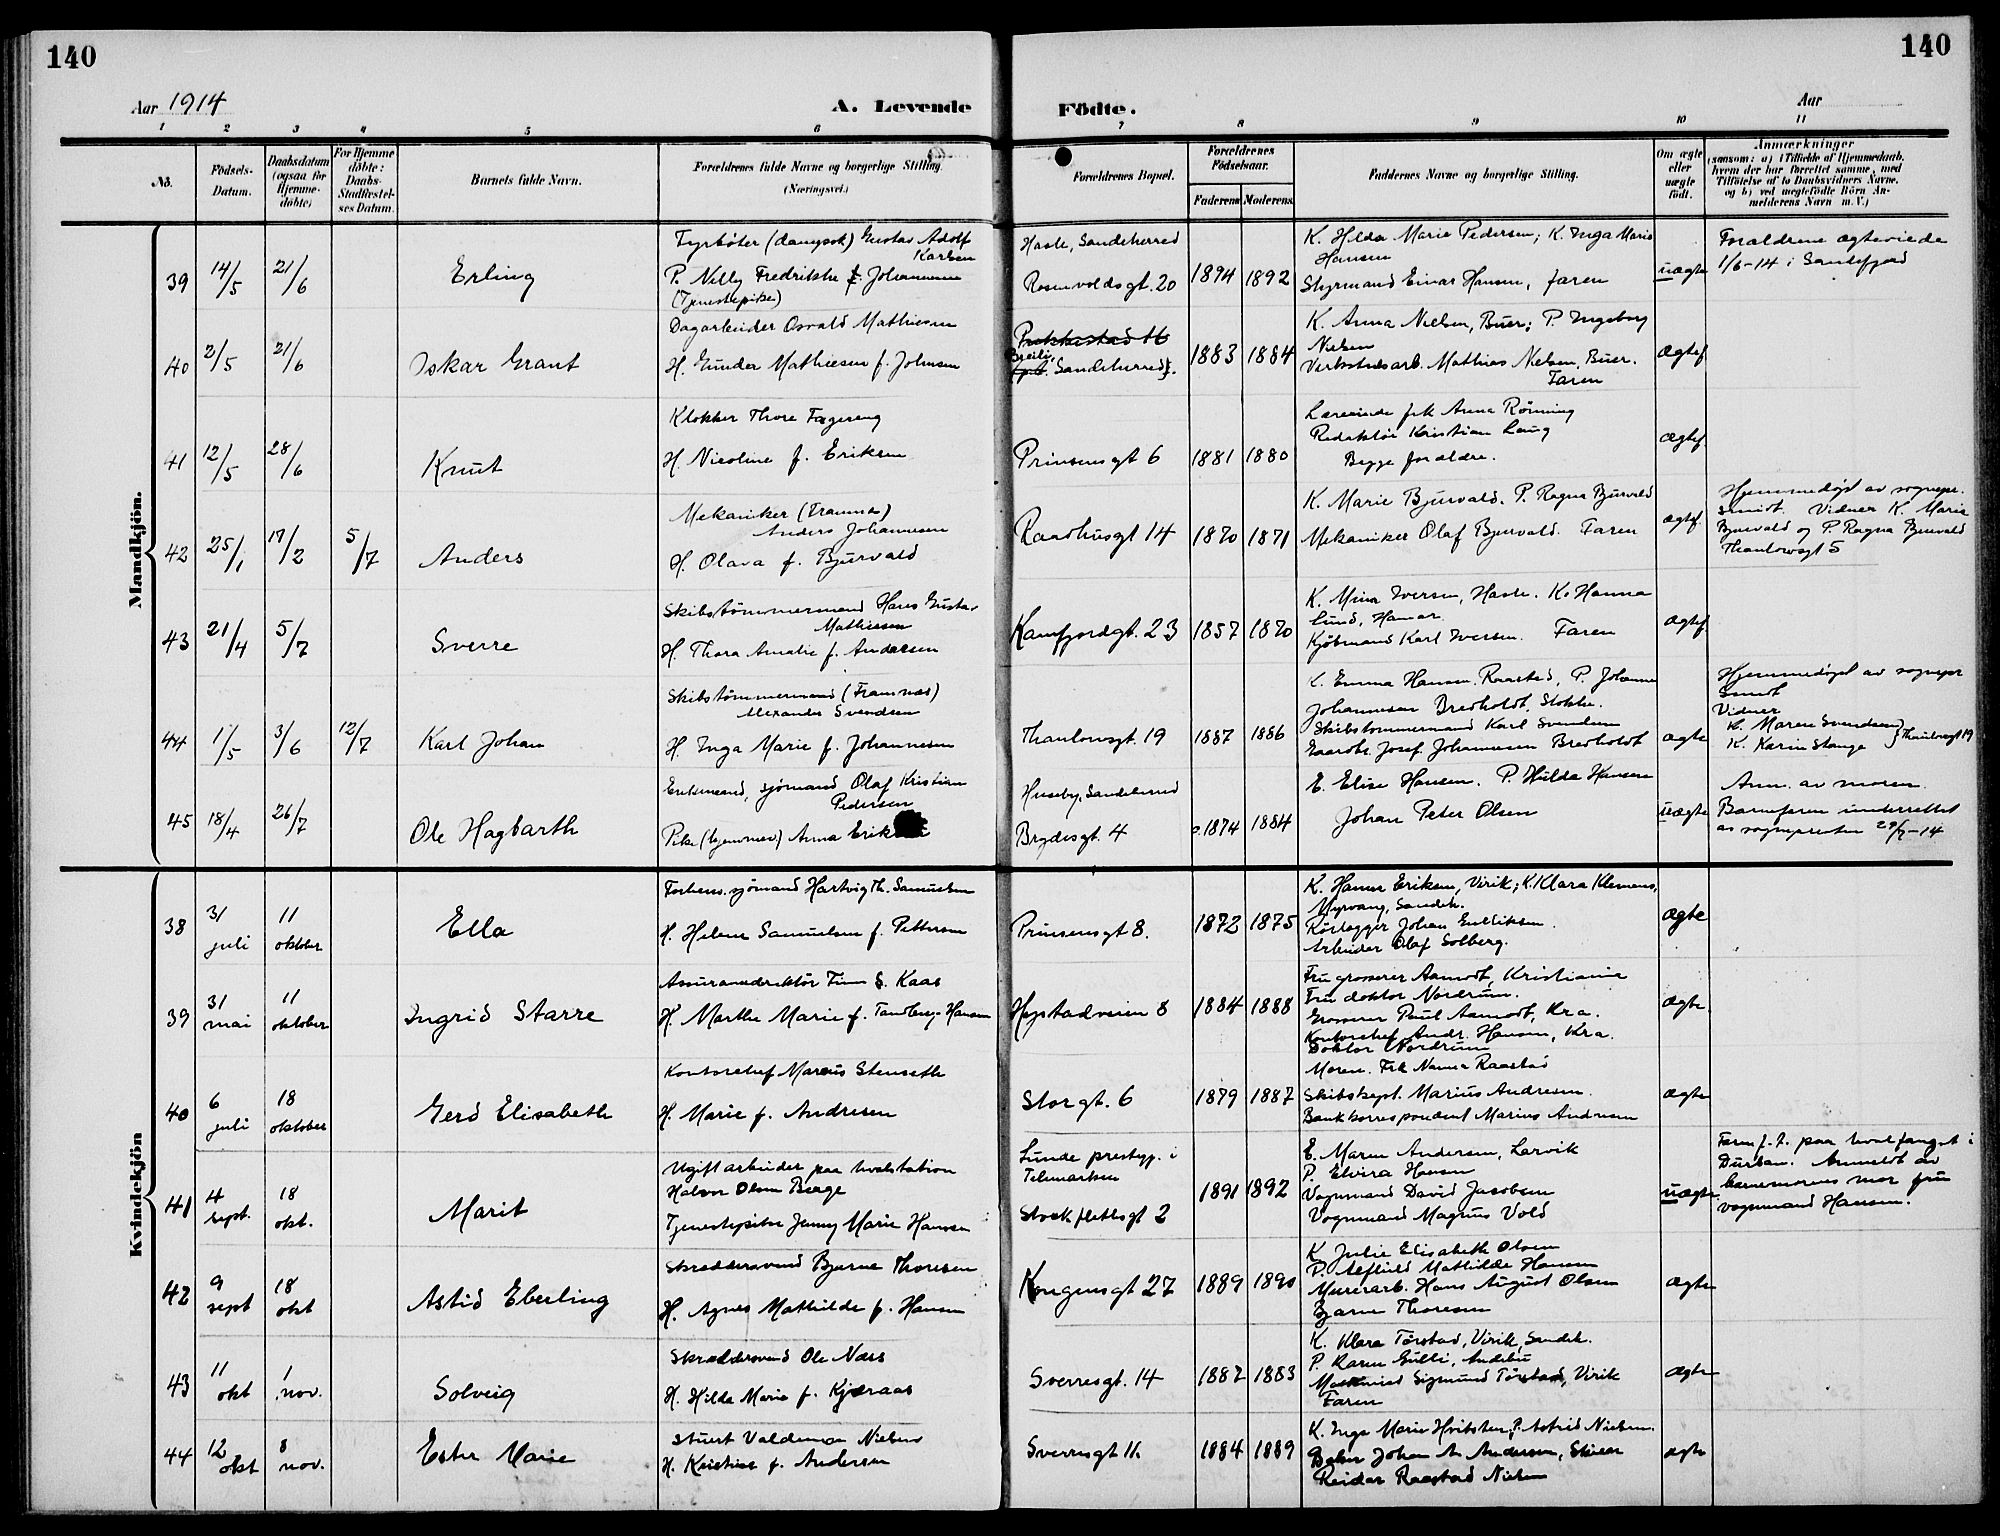 140
140
Aar 1914
A. Levende
Födte.
Aar
1 2 3 4 5 6 7 8 9 10 11
No.
Födsels-Datum.
Daabsdatum (ogsaa for Hjemme-döbte)
For Hjemme döbte: Daabs-Stadfæstel-ses Datum.
Barnets fulde Navn.
Forældrenes fulde Navne og borgerlige Stilling.
(Næringsvei.)
Forældrenes Bopæl.
Forældrenes Födselsaar.
Faderens Moderens
Faddernes Navne og borgerlige Stilling.
Om ægte eller uægte födt.
Anmærkninger
(saasom: a) i Tilfælde af Hjemmedaab, hvem der har forrettet samme, med Tilföielse af to Daabsvidners Navne, og b) ved uægtefödte Börn An-melderens Navn m. V.)
Mandkjön.
39 14/5 21/6 Erling
Fyrböter (dampsk) Gustav Adolf
Karlsen
P. Nelly Fredrikke f. Johannesen
(Tjenestepike)
Hasle, Sandeherred
Rosenvoldsgt. 20
1894 1892
K. Hilda Marie Pedersen; K. Inga Marie
Hansen
Styrmand Einar Hansen, faren
uægte
Forældrene ægteviede
1/6-14 i Sandefjord
40 2/5 21/6 Oskar Grant
Dagarbeider Osvald Mathiesen
H. Gunda Mathiesen f. Johnsen
Sandeherred
1883 1884
K. Anna Nielsen, Buer; P. Ingeborg
Nielsen
Verkstedsarb. Mathias Nielsen, Buer.
Faren
ægtef
41 12/5 28/6 Knut
Klokker Thore Fagerang
H. Nicoline f. Eriksen
Prinsensgt 6
1881 1880
Lærerinde frk Anna Rönning
Redaktör Kristian Laug
Begge forældre.
ægtef
42 25/1 17/2 5/7 Anders
Mekaniker (Framnæs)
Anders Johannesen
H. Olava f. Bjurvald
Raadhusgt 14
1870 1871
K. Marie Bjurvald. P. Ragna Bjurvald
Mekaniker Olaf Bjurvald. Faren
ægtef
Hjemmedöpt av sognepr.
Smidt. Vidner K. Marie
Bjurvald og P. Ragna Bjurvald
Thaulowsgt 5
43 21/4 5/7 Sverre
Skibstömmermand Hans Gustav
Mathiesen
H. Thora Amalie f. Andersen
Kamfjordgt. 23
1857 1870
K. Mina Iversen, Hasle. K. Hanna
Lund, Hamar.
Kjöbmand Karl Iversen. Faren
ægtef
44 1/5 3/6 12/7 Karl Johan
Skibstömmermand (Framnæs)
Alexander Svendsen
H. Inga Marie f. Johannesen
Thaulowsgt. 19
1887 1886
K. Emma Hansen, Raastad, P. Johanne
Johannesen Bredholdt, Stokke.
Skibstömmermand Karl Svendsen
Gaardbr. Josef Johannesen Bredholdt
ægte
Hjemmedöpt av sognepr
Smidt
Vidner
K. Maren Svendsen
K. Karin Stange } Thaulowsgt 19
45 18/4 26/7 Ole Hagbarth
Enkemand, sjömand Olaf Kristian
Pedersen
Pike (hjemmev) Anna
Huseby, Sandeherred
Brydesgt. 4
1874 1884
E. Elise Hansen. P. Hilda Hansen
Johan Peter Olsen
uægte
Anm. av moren.
Barnefaren underrettet
av sogneprsten 29/7-14
Kvindekjön
38 31 juli 11 oktober Ella
Forhens. sjömand Hartvig Th. Samuelsen
H. Helene Samuelsen f. Pettersen
Prinsensgt 8.
1872 1875
K. Hanna Eriksen, Virik; K. Klara Klemens,
Myrvang, Sandeh.
Rörlegger Johan Endriksen.
Arbeider Olaf Solberg.
ægte
39 31 mai 11 oktober Ingrid Starre
Assurancedirektör Finn S. Kaas
H. Marthe Marie f. Tandberg-Hansen
Hystadveien 8
1884 1888
Fru grosserer Aamodt, Kristiania
Fru doktor Nordrum.
Grosserer Paul Aamodt, Kra.
Kontorchef Andr. Hansen, Kra.
Doktor Nordrum
ægte
40 6 juli 18 oktober Gerd Elisabeth
Kontorchef Marius Stenseth
H. Marie f. Andresen
Storgt. 6
1879 1887
Moren. Frk Nanna Raastad
Skibskapt. Marius Andresen.
Bankkorrespondent Marius Andresen
ægte
41 4 sept. 18 okt. Marit
Ugift arbeider paa hvalstation
Halvor Olsen Berge
Tjenestepike Jenny Marie Hansen
Lunde prestegj. i
Telemarken
Stockflethsgt 2
1891 1892
E. Maren Andersen, Larvik
P. Elvira Hansen
Vognmand David Jacobsen
Vognmand Magnus Vold
uægte
Faren f. t. paa hvalfangst i
Durban. Anmeldt av
barnemorens mor fru
vognmand Hansen.
42 9 sept 18 okt Astid Eberling
Skræddersvend Bjarne Thoresen
H. Agnes Mathilde f. Hansen
Kongensgt 27
1889 1890
K. Julie Elisabeth Olsen
P. Alfhild Mathilde Hansen
Murerarb. Hans August Olsen
Bjarne Thoresen
ægte
43 11 okt 1 nov. Solveig
Skræddersvend Ole Næss
H. Hilda Marie f. Kjæraas
Sverresgt. 14
1882 1883
K. Klara Törstad, Virik, Sandeh.
P. Karen Gulli, Andebu
Sigmund Törstad, Virik
Faren
ægte
44 12 okt 8 nov. Ester Marie
Stuert Valdemar Nielsen
H. Kristine f. Andersen
Sverresgt 11.
1884 1889
K. Inga Marie Hvitsten, P. Astrid Nielsen.
Baker Johan A. Andersen, Skien
Reidar Raastad Nielsen
ægte